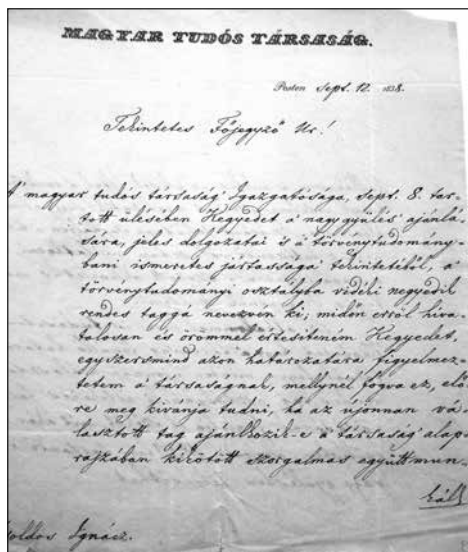 MAGYAR TUDÓS TÁRSASÁG.
Pesten Sept. 12. 1838.
Tekintetes Főjegyző Úr!
A' magyar tudós társaság Igazgatósága, sept. 8. tar-
tott ülésében Kegyedet a' nagy gyülés' ajánlá-
sára, jeles dolgozatai is a' törvénytudomány-
bani ismeretes jártassága' tekintetéből, a'
törvénytudományi osztályba vidéki negyedik
rendes taggá nevezvén ki; midőn erről hiva-
talosan és örömmel értesíteném Kegyedet,
egyszersmind azon határozatára figyelmez-
tetem a' társaságnak, mellynél fogva ez, elő
re meg kivánja tudni, ha az újonnan vá-
lasztott tag ajánlkozik-e a' társaság' alap-
rajzában kikötött szorgalmas együttmun-
kál
oldos Ignácz.